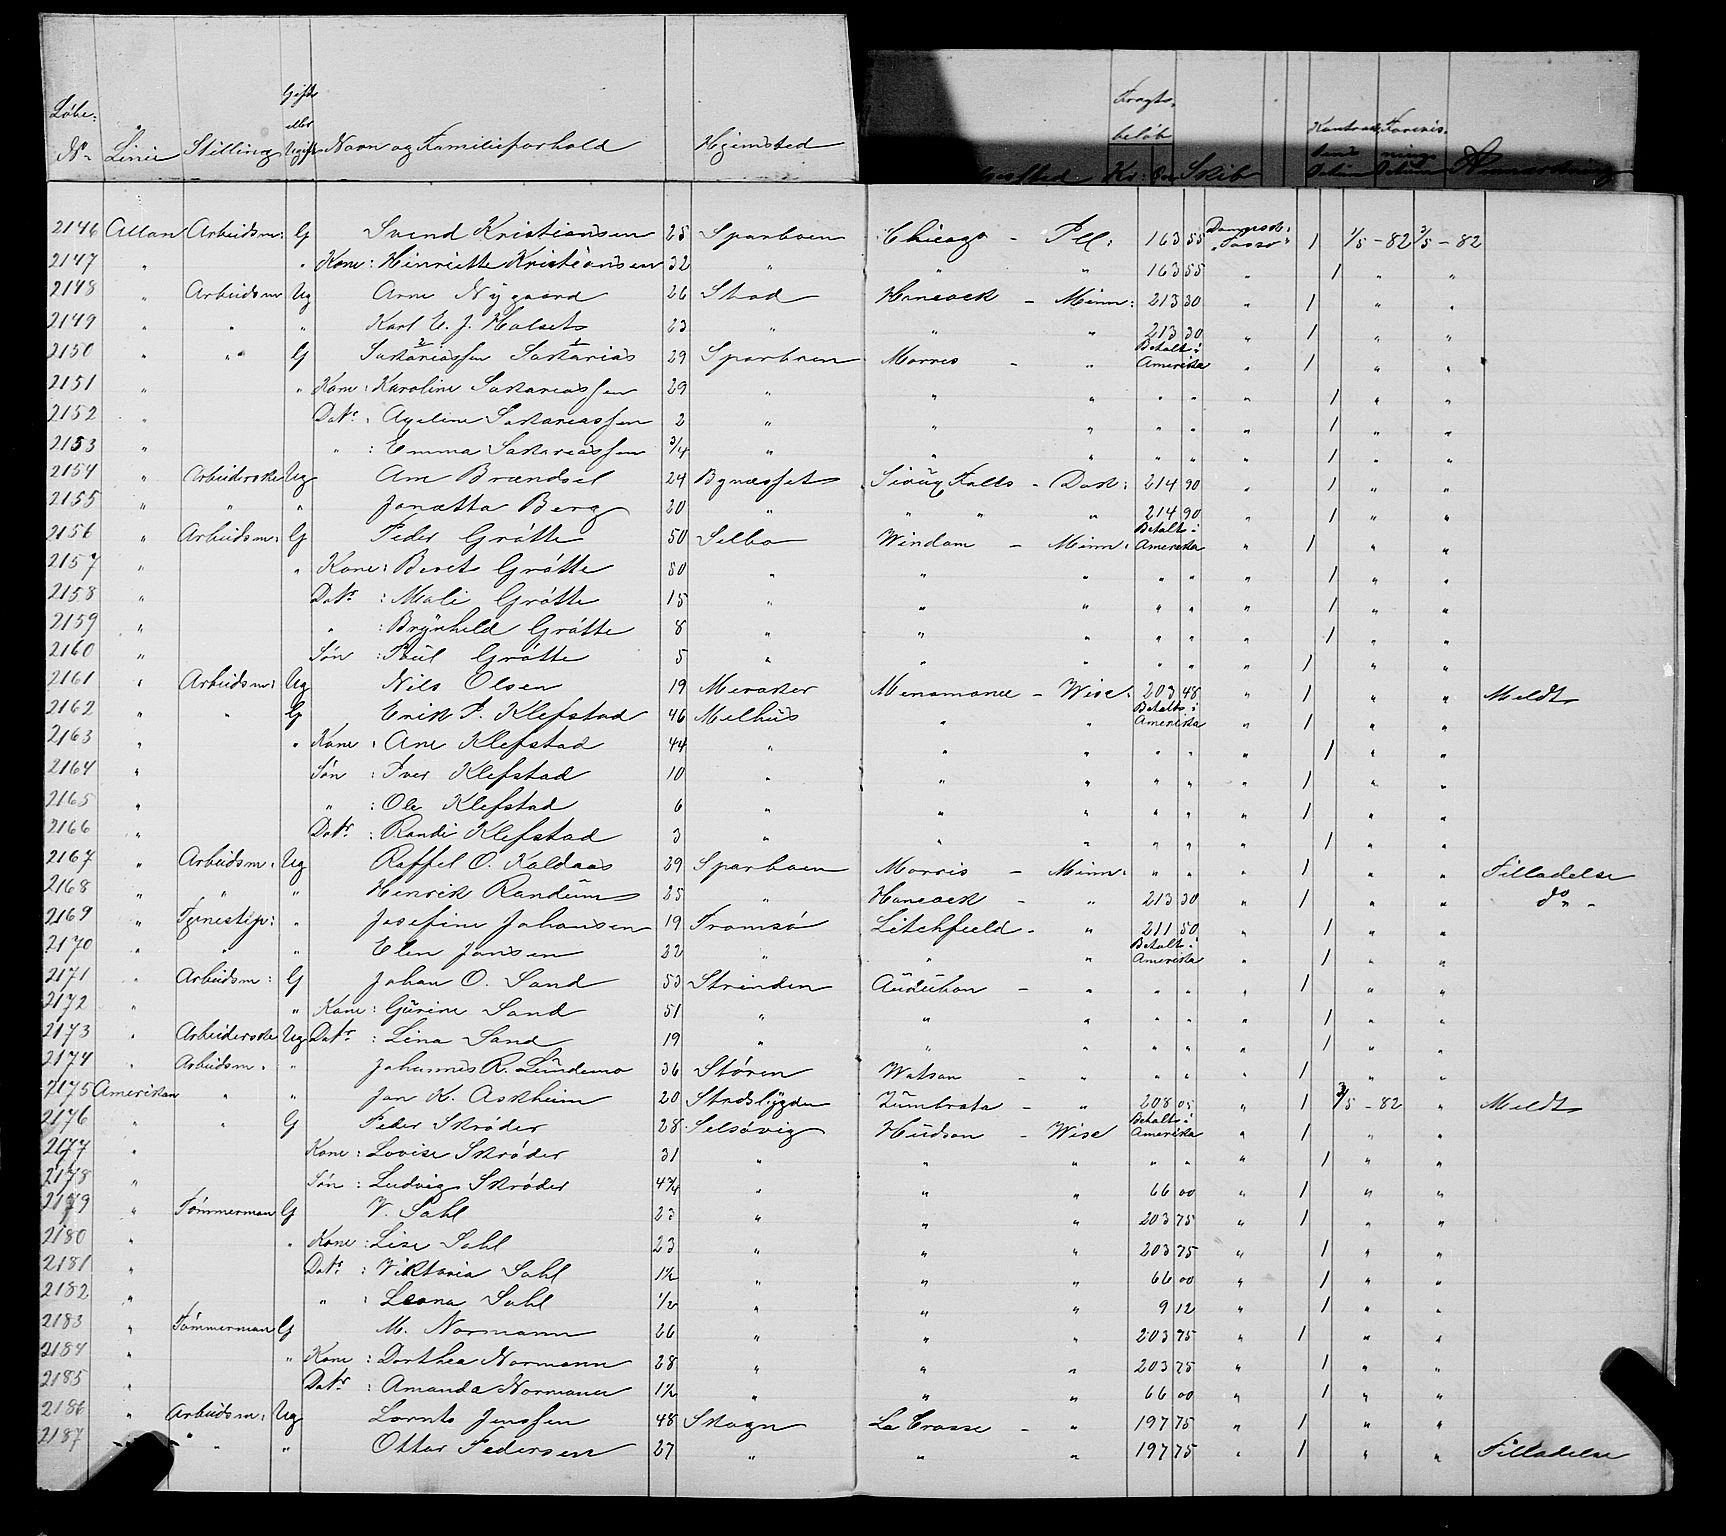 Løbe: No Linie Stilling Gift eller Ugift Navn og Familieforhold Hjemsted Fragtbeløb Kr: Øre Skib Anmærkning
2146 Allan Arbeidsm: G Svend Kristiansen 25 Sparboen Chicago - Ill: 163 55 Dampssk: "Tasso" 1 1/5 - 82 3/5 - 82
2147 " " Kone: Henriette Kristiansen 32 " " " 163 55 " 1 " "
2148 " Arbeidsm Ug Arne Nygaard 26 Stod Hancock - Minn: 213 30 " 1 " "
2149 " " " Karl E. J. Halset 23 " " " 213 30 " 1 " "
2150 " " G Sakariassen Sakarias 29 Sparboen Morris - " Betalt i Amerika " 1 " "
2151 " " Kone: Karoline Sakariassen 29 " " " " " " 1 " "
2152 " Datr: Axeline Sakariassen 2 " " " " " " 1 " "
2153 " " : Emma Sakariassen 3/4 " " " " " " 1 " "
2154 " Arbeiderske Ug Ane Brændsel 24 Bynæsset Sioux Falls - Dak: 214 90 " 1 " "
2155 " " " Jonetta Berg 20 " " " " 214 90 " 1 " "
2156 " Arbeidsm: G Peder Grøtte 50 Selbo Windom - Minn: Betalt i Amerika " 1 " "
2157 " " Kone: Beret Grøtte 50 " " " " " " 1 " "
2158 " Datr: Mali Grøtte 15 " " " " " " 1 " "
2159 " " : Brynhild Grøtte 8 " " " " " " 1 " "
2160 " Søn : Poul Grøtte 5 " " " " " " 1 " "
2161 " Arbeidsm: Ug Nils Olsen 19 Meraker Menomonee - Wisc. 203 48 " 1 " " Meldt
2162 " " G Erik P. Klefstad 46 Melhus " " Betalt i Amerika " 1 " "
2163 " " Kone : Ane Klefstad 44 " " " " " " 1 " "
2164 " Søn : Iver Klefstad 10 " " " " " " 1 " "
2165 " " : Ole Klefstad 6 " " " " " " 1 " "
2166 " Datr: : Randi Klefstad 3 " " " " " " 1 " "
2167 " Arbeidsm: Ug Raffel O. Kaldaas 29 Sparboen Morris - Minn: " " " 1 " " Tilladelse
2168 " " " Henrik Randum 25 " Hancock - " 213 30 " 1 " " do -
2169 " Tjenestep: " Josefine Johansen 19 Tromsø Litchfield - " 211 50 " 1 " "
2170 " " " Elen Jansen 22 " " " Betalt i Amerika " 1 " "
2171 " Arbeidsm: G Johan O. Sand 53 Strinden Audubon - " " " " 1 " "
2172 " " Kone: Gurine Sand 51 " " " " " " 1 " "
2173 " Arbeiderske Ug Datr: : Lina Sand 19 " " " " " " 1 " "
2174 " Arbeidsm. " Johannes R. Lundemo 36 Støren Watson - " " " " 1 " "
2175 Amerikan " " Jon K. Askheim 20 Stadsbygden Zumbrota - " 208 05 " 1 3/5 - 82 " Meldt
2176 " " G Peder Skrøder 28 Selsøvig Hudson - Wisc Betalt i Amerika " 1 " "
2177 " Kone: Lovise Skrøder 31 " " " " " " 1 " "
2178 " Søn: Ludvig Skrøder 4 3/4 " " " 66 00 " 1 " "
2179 " Tømmerman G V. Sahl 23 " " " 203 75 " 1 " "
2180 " " Kone: Lise Sahl 23 " " " 203 75 " 1 " "
2181 " Datr: : Viktoria Sahl 1 1/2 " " " 66 00 " 1 " "
2182 " " : Leona Sahl 1/2 " " " 9 12 " 1 " "
2183 " Tømmerman G M. Normann 26 " " " 203 75 " 1 " "
2184 " " Kone : Dorthea Normann 28 " " " 203 75 " 1 " "
2185 " Datr: : Amanda Normann 1 1/2 " " " 66 00 " 1 " "
2186 " Arbeidsm: Ug Lornts Jenssen 48 Skogn La Crosse - " 197 75 " 1 " "
2187 " " " Ottar Pedersen 27 " " " 197 75 " 1 " " Tilladelse